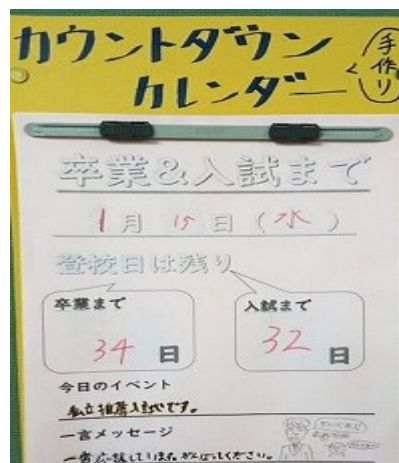 カウントダウン
カレンダー
手作り
卒業&入試まで
1月15日(水)
登校日は残り
卒業まで
34日
入試まで
32日
今日のイベント
私立推薦入試です。
一言メッセージ
一番応援しています。がんばってください。